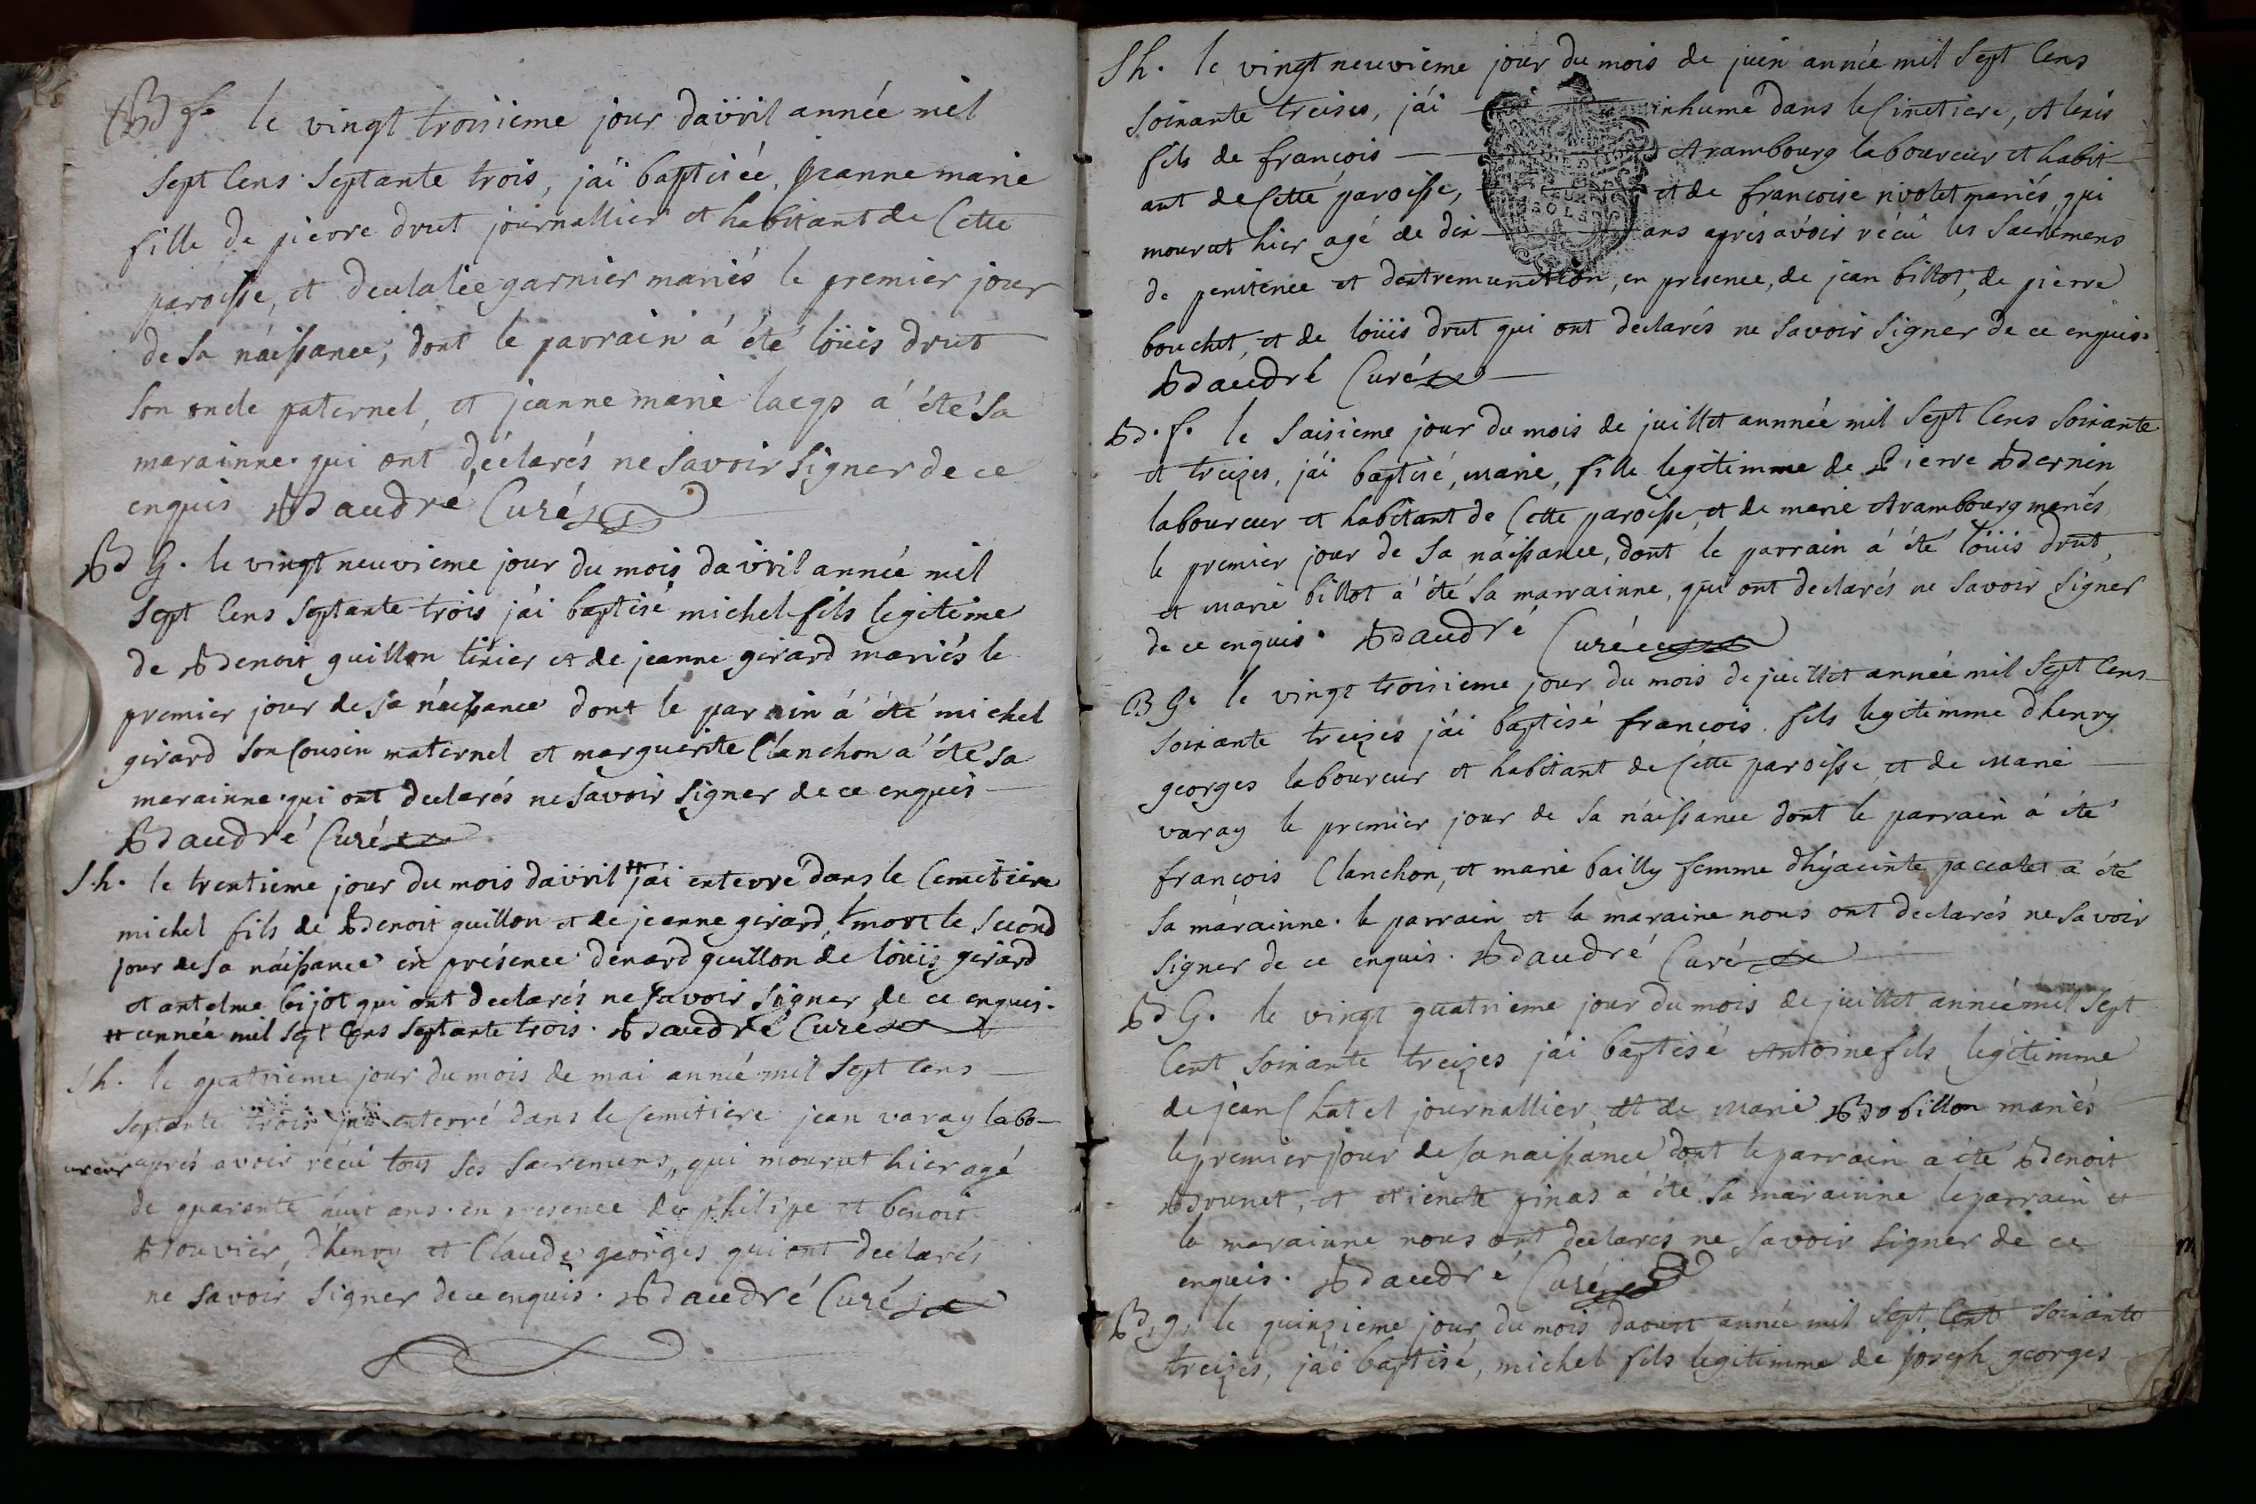 Bd f. le vingt troisieme jour davril année mil
sept Cens septante trois, jái baptisée, jeanne marie
fille de pierre drut journallier et habitant de Cette
paroisse, et deulalie garnier mariés le premier jour
de sa náissance, dont le parrain á été loüis drut
son oncle paternel, et jeanne marie á été sa
marainne. qui ont déclarés ne savoir signer de ce
enquis Baudré Curé
Bd G. le vingt neuvieme jour du mois davril année mil
sept Cens septante trois jái baptisé michel fils legitime
de Benoit guillon tixier et de jeanne girard mariés le
premier jour de sa náissance dont le parrain á été michel
girard son Cousin maternel et marguerite Clanchon á été sa
marainne. qui ont declarés ne savoir signer de ce enquis
Baudré Curé
S.h. le trentieme jour du mois davril # jái enterré dans le Cemitiere
michel fils de Benoit guillon et de jeanne girard, mort le second
jour de sa náissance en présence denard guillon de loüis girard
et antelme bijot qui ont declarés ne savoir signer de ce enquis.
# année mil sept Cens septante trois. Baudré Curé
S h. le quatrieme jour du mois de mai année mil sept Cens
septante trois jai enterré dans le Cemitiere jean varay labo-
ureur aprés avoir récû tous ses sacremens, qui mourut hier agé
de quarente huit ans. en presence de philipe et benoit
Bouvier, dhenry et Claude georges qui ont declarés
ne savoir signer de ce enquis. Baudré Curé
S h. le vingt neuvieme jour du mois de juin année mil sept Cens
soixante treises, jái inhumé dans le Cimetiere, Alexis
fils de françois Arambourg laboureur et habit-
ant de Cette paroisse, et de francoise rivolet mariés, qui
mourut hier agé de dix ans aprés ávóir récû les sacremens
de penitence et dextremunction, en presence, de jean billot, de pierre
bouchet, et de loüis drut qui ont declarés ne savoir signer de ce enquis.
Baudré Curé
Bd. f. le saisieme jour du mois de juillet annnée mil sept Cens soixante
et treizes, jái baptisé, marie, fille legitimme de Pierre Bernin
laboureur et habitant de Cette paroisse et de marie Arambourg mariés
le premier jour de sa náissance, dont le parrain á été loüis drut,
et marie billot á été sa marrainne, qui ont declarés ne savoir signer
de ce enquis. Baudré Curé
B G. le vingt troisieme jour du mois de juillet année mil sept Cens
soixante treizes jái baptisé françois fils legitimme dhenry
georges laboureur et habitant de Cette paroisse et de Marie
varay le premier jour de sa náissance dont le parrain á été
françois Clanchon, et marie bailly femme dhyacinte paccalet á été
sa márainne. le parrain et la maraine nous ont declarés ne savoir
signer de ce enquis. Baudré Curé
Bd G. le vingt quatrieme jour du mois de juillet année mil sept
Cent soixante treizes jái baptisé Antoine fils legitimme
de jean Chatel journallier, et de Marie Bobillon mariés
le premier jour de sa naissance dont le parrain a été Benoit
Brunet, et etienete pinas á été sa marainne le parrain et
la marainne nous ont declarés ne savoir signer de ce
enquis. Baudré Curé
Bd, g, le quinzieme jour du mois daoust année mil sept Cent soixante
treizes, jái baptisé, michel fils legitimme de joseph georges